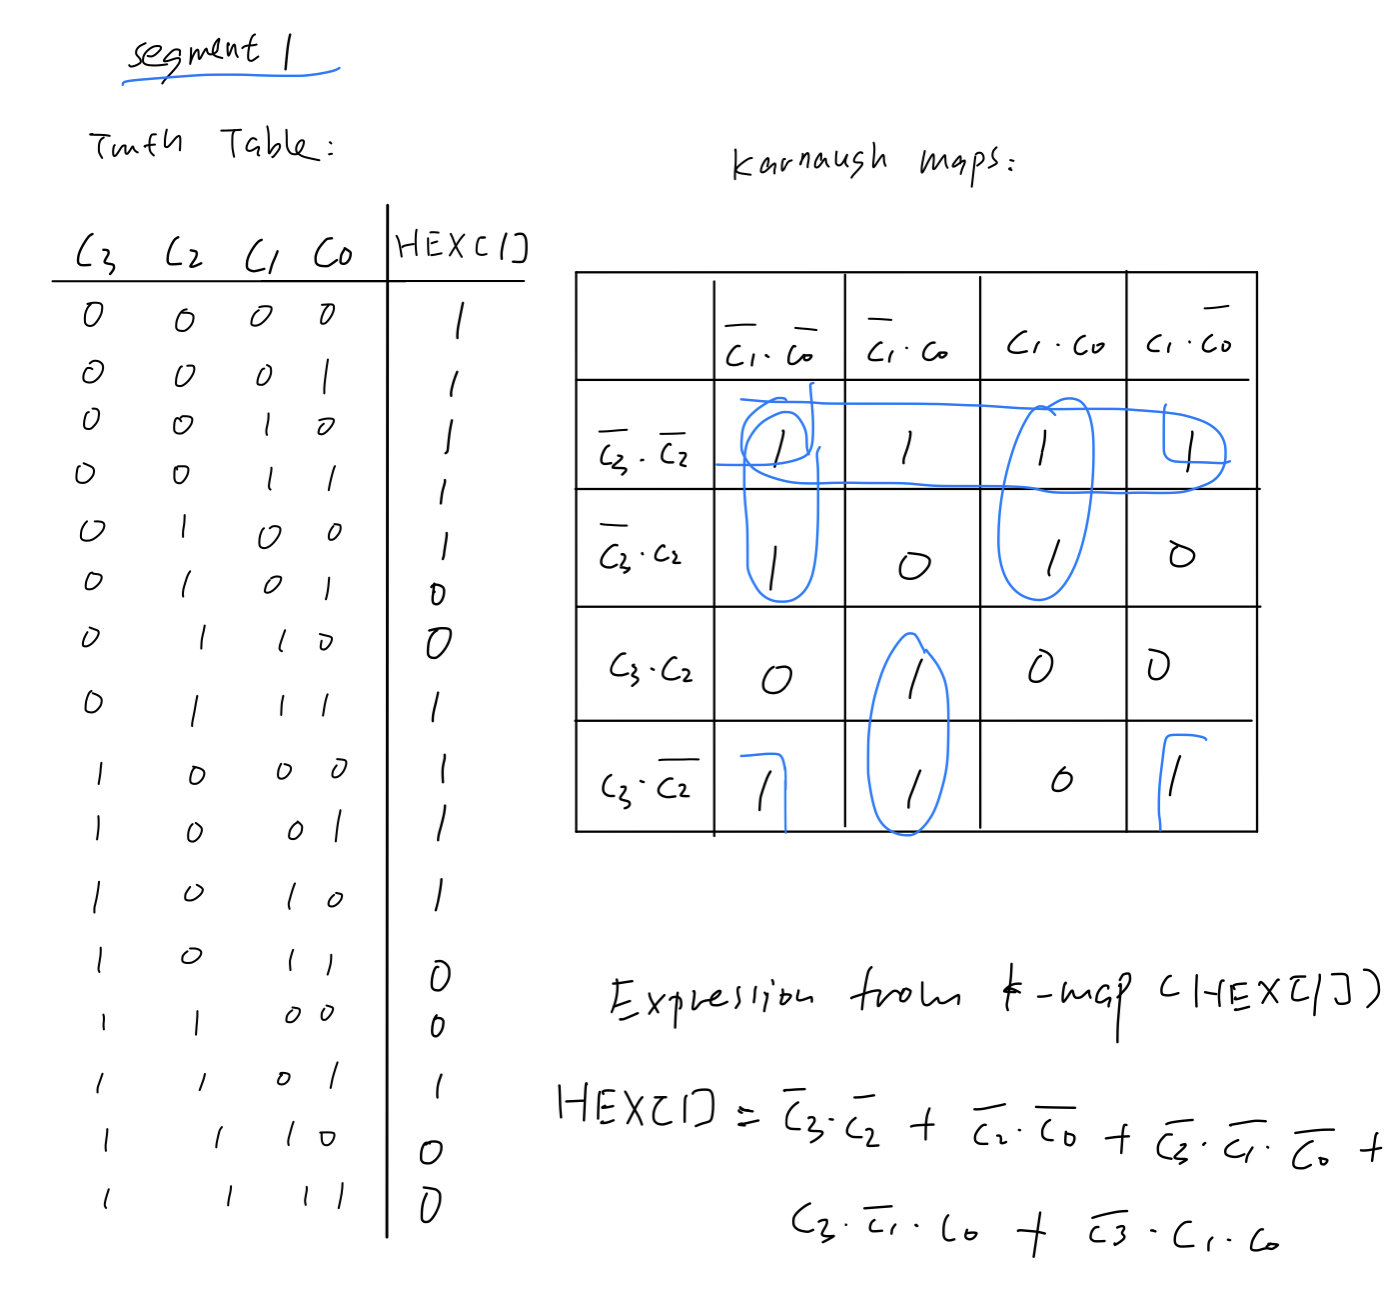 segment 1
Truth Table:
C3 C2 C1 C0 HEX[1]
0 0 0 0 1
0 0 0 1 1
0 0 1 0 1
0 0 1 1 1
0 1 0 0 1
0 1 0 1 0
0 1 1 0 0
0 1 1 1 1
1 0 0 0 1
1 0 0 1 1
1 0 1 0 1
1 0 1 1 0
1 1 0 0 0
1 1 0 1 1
1 1 1 0 0
1 1 1 1 0
Karnaugh maps:
C̅1·C̅0 C̅1·C0 C1·C0 C1·C̅0
C̅3·C̅2 1 1 1 1
C̅3·C2 1 0 1 0
C3·C2 0 1 0 0
C3·C̅2 1 1 0 1
Expression from k-map (HEX[1])
HEX[1] = C̅3·C̅2 + C̅2·C̅0 + C̅3·C̅1·C̅0 +
C3·C̅1·C0 + C̅3·C1·C0